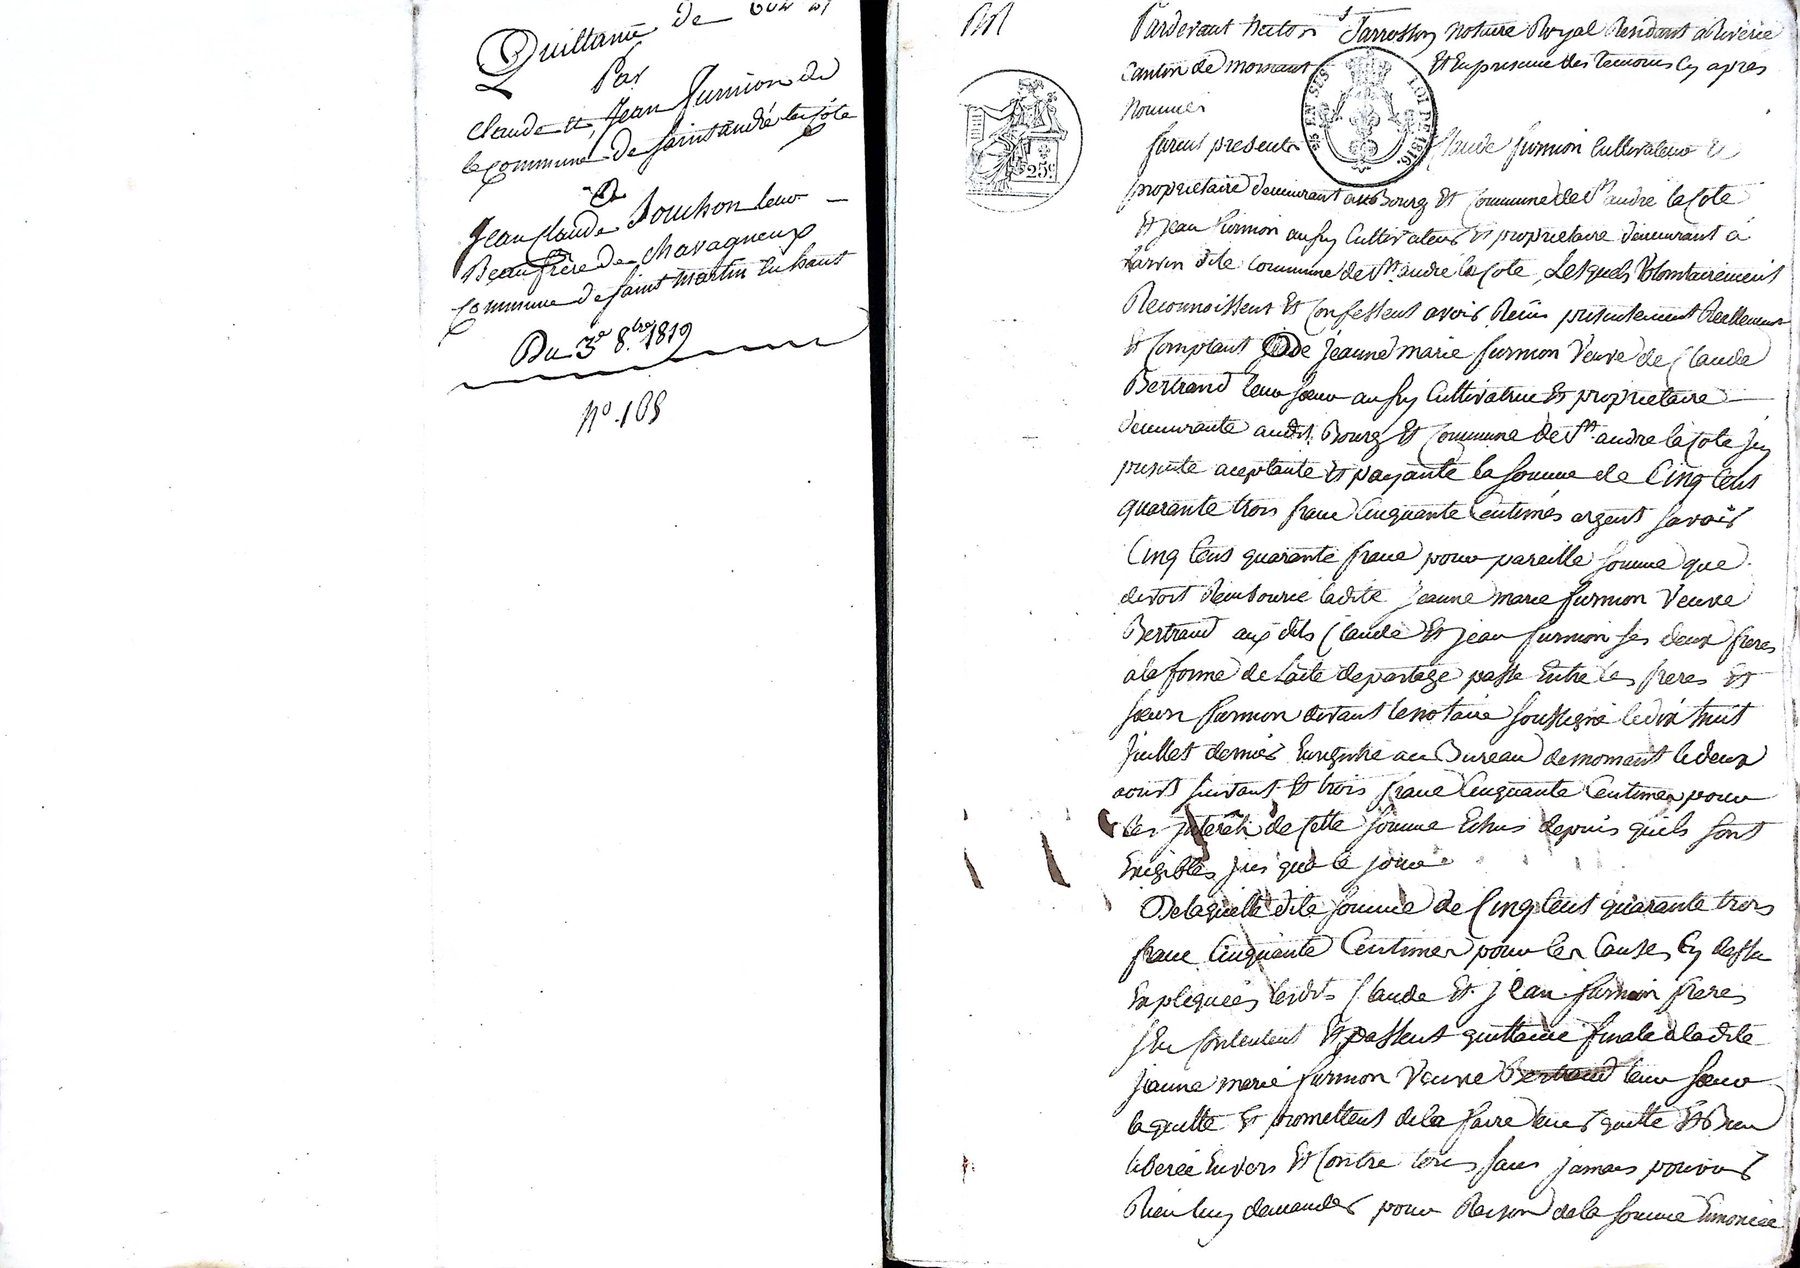 Quittance de
Par
Claude et Jean furnion de
la commune de saint andré la côte
A
Jean Claude Bouchon leur
Beaufrère de Chavagneux
Commune de saint Martin en haut
Du 3e 8.bre 1819
N° 105
Pardevant Jarrosson notaire Royal Résidant a Riverie
Canton de mornant Et En présence des temoins Cy après
nommés
25c
EN SUS LOI DE 1816
furent presents Claude furnion Cultivateur Et
propriétaire demeurant aux Bourg Et Commune de St andré la Cote
Et Jean furnion aussy Cultivateur Et propriétaire demeurant à
dite commune de St andré la Cote, Lesquels Volontairement
Reconnoissent Et Confessent avoir Reçu présentement Réellement
Et Comptant de Jeanne marie furnion Veuve de Claude
Bertrand leur sœur aussy Cultivatrice Et propriétaire
demeurante audit Bourg Et Commune de St andré la Cote Jcy
présente aceptante Et payante la somme de Cinq Cens
quarante trois franc Cinquante Centimes argent savoir
Cinq Cens quarante franc pour pareille somme que
devoit Rembourcé ladite Jeanne marie furnion Veuve
Bertrand aux dits Claude Et Jean furnion ses deux freres
a la forme de Lacte de partage passé Entre les freres Et
sœurs furnion devant le notaire soussigné le dix huit
Juillet dernier Enregistré au Bureau de mornant le deux
aoust suivant Et trois franc Cinquante Centimes pour
les Jnterêts de Cette somme Echus depuis quils sont
Exigibles Jus qua ce jour
De laquelle dite somme de Cinq Cens quarante trois
franc Cinquante Centimes pour les Causes Cy dessu
Expliquées lesdits Claude Et Jean furnion freres
sEn Contentent Et passent quittance finale a ladite
Jeanne marie furnion Veuve Bertrand leur sœur
la quitte Et promettent de la faire tenir quitte Et Bien
liberée Envers Et Contre tous sans jamais pouvoir
Rien luy demander pour Raison de la somme Enoncée